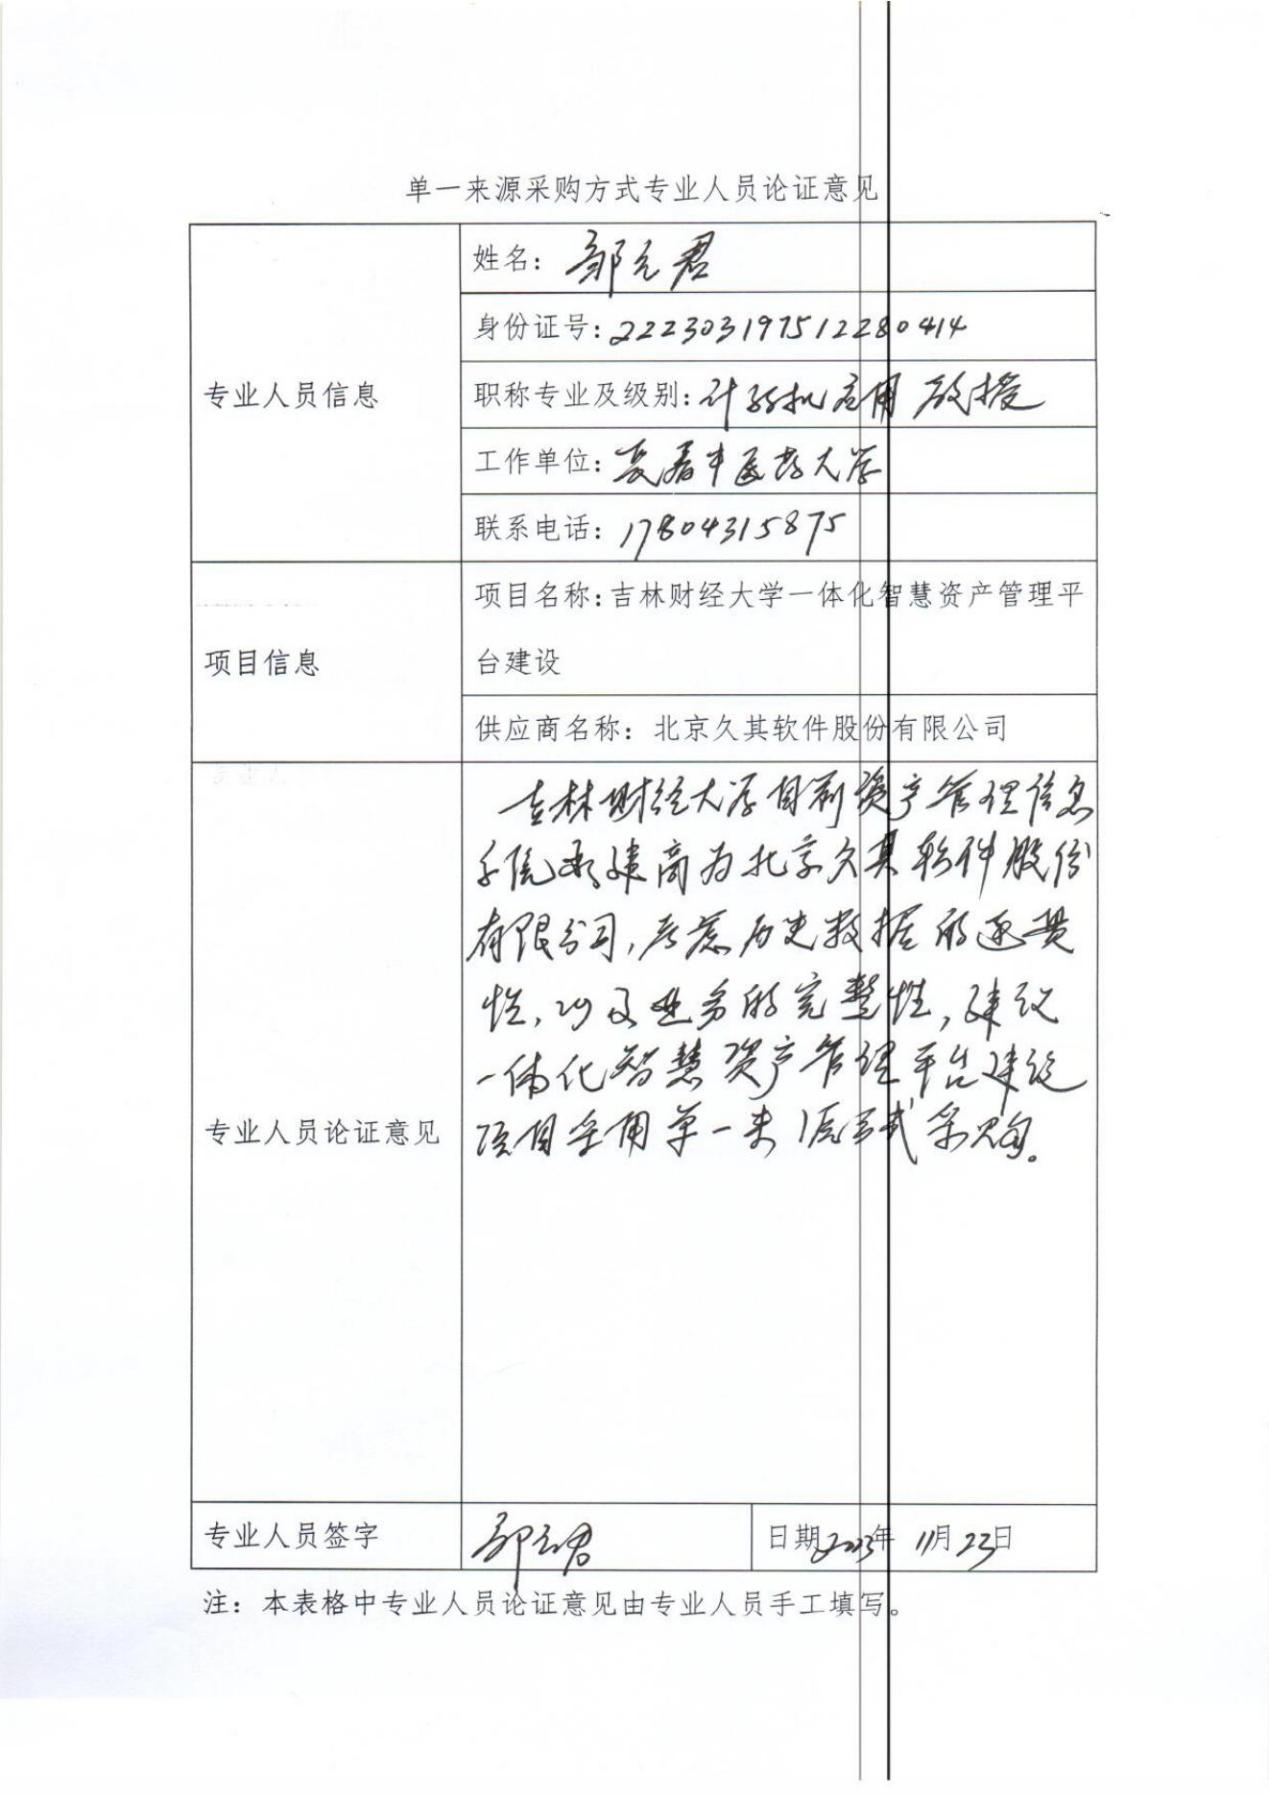 单一来源采购方式专业人员论证意见
专业人员信息
姓名：邹元君
身份证号：222303197512280414
职称专业及级别：计算机应用 教授
工作单位：长春中医药大学
联系电话：17804315875
项目信息
项目名称：吉林财经大学一体化智慧资产管理平
台建设
供应商名称：北京久其软件股份有限公司
专业人员论证意见
吉林财经大学目前资产管理信息
系统承建商为北京久其软件股份
有限公司，考虑历史数据的连贯
性，以及业务的完整性，建议
一体化智慧资产管理平台建设
项目采用单一来源方式采购。
专业人员签字
邹元君
日期2023年 11月23日
注：本表格中专业人员论证意见由专业人员手工填写。